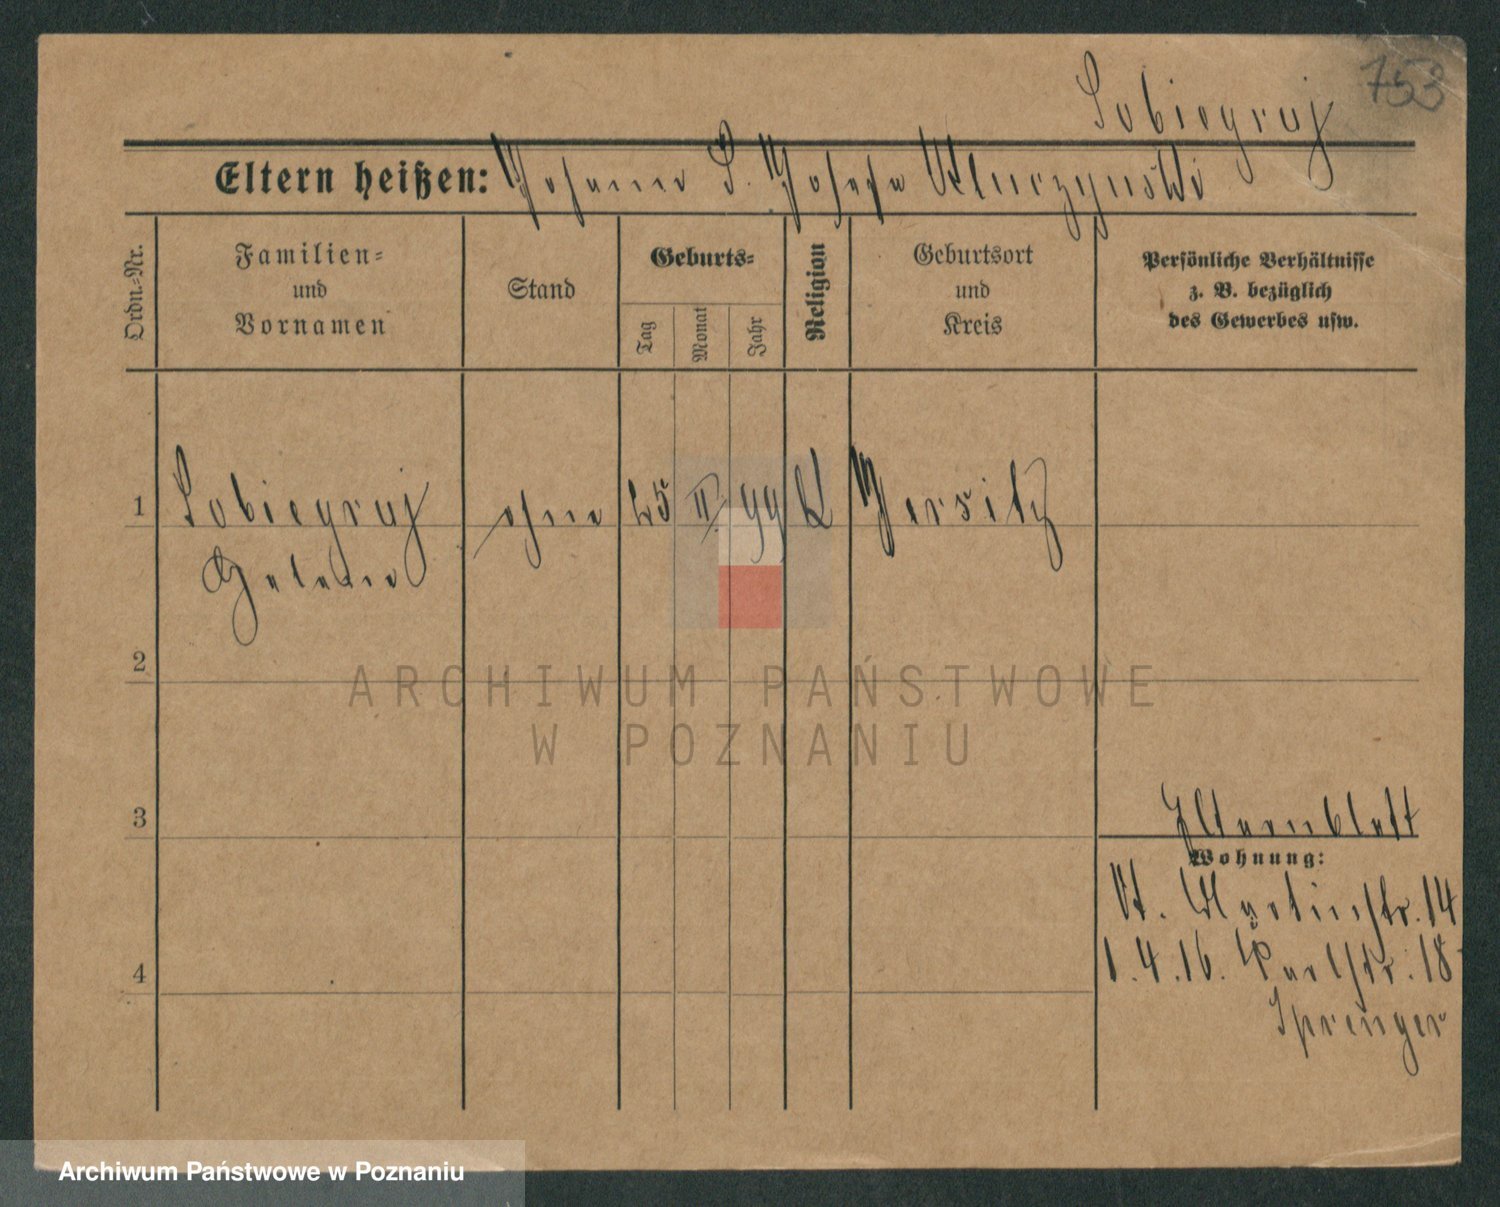 753
Sobiegraj
Eltern heißen: Johann S. Josefa Kluczynski
Ordn.-Nr.
Familien-
und
Vornamen
Stand
Geburts-
Tag
Monat
Jahr
Religion
Geburtsort
und
Kreis
Persönliche Verhältnisse
z. B. bezüglich
des Gewerbes usw.
1 Sobiegraj ohne 25 II. 99 K Jersitz
Helene
2
3
Elternblatt
Wohnung:
St. Martinstr. 14
1.4.16. Karlstr. 18
4
Sprenger
ARCHIWUM PAŃSTWOWE
W POZNANIU
Archiwum Państwowe w Poznaniu